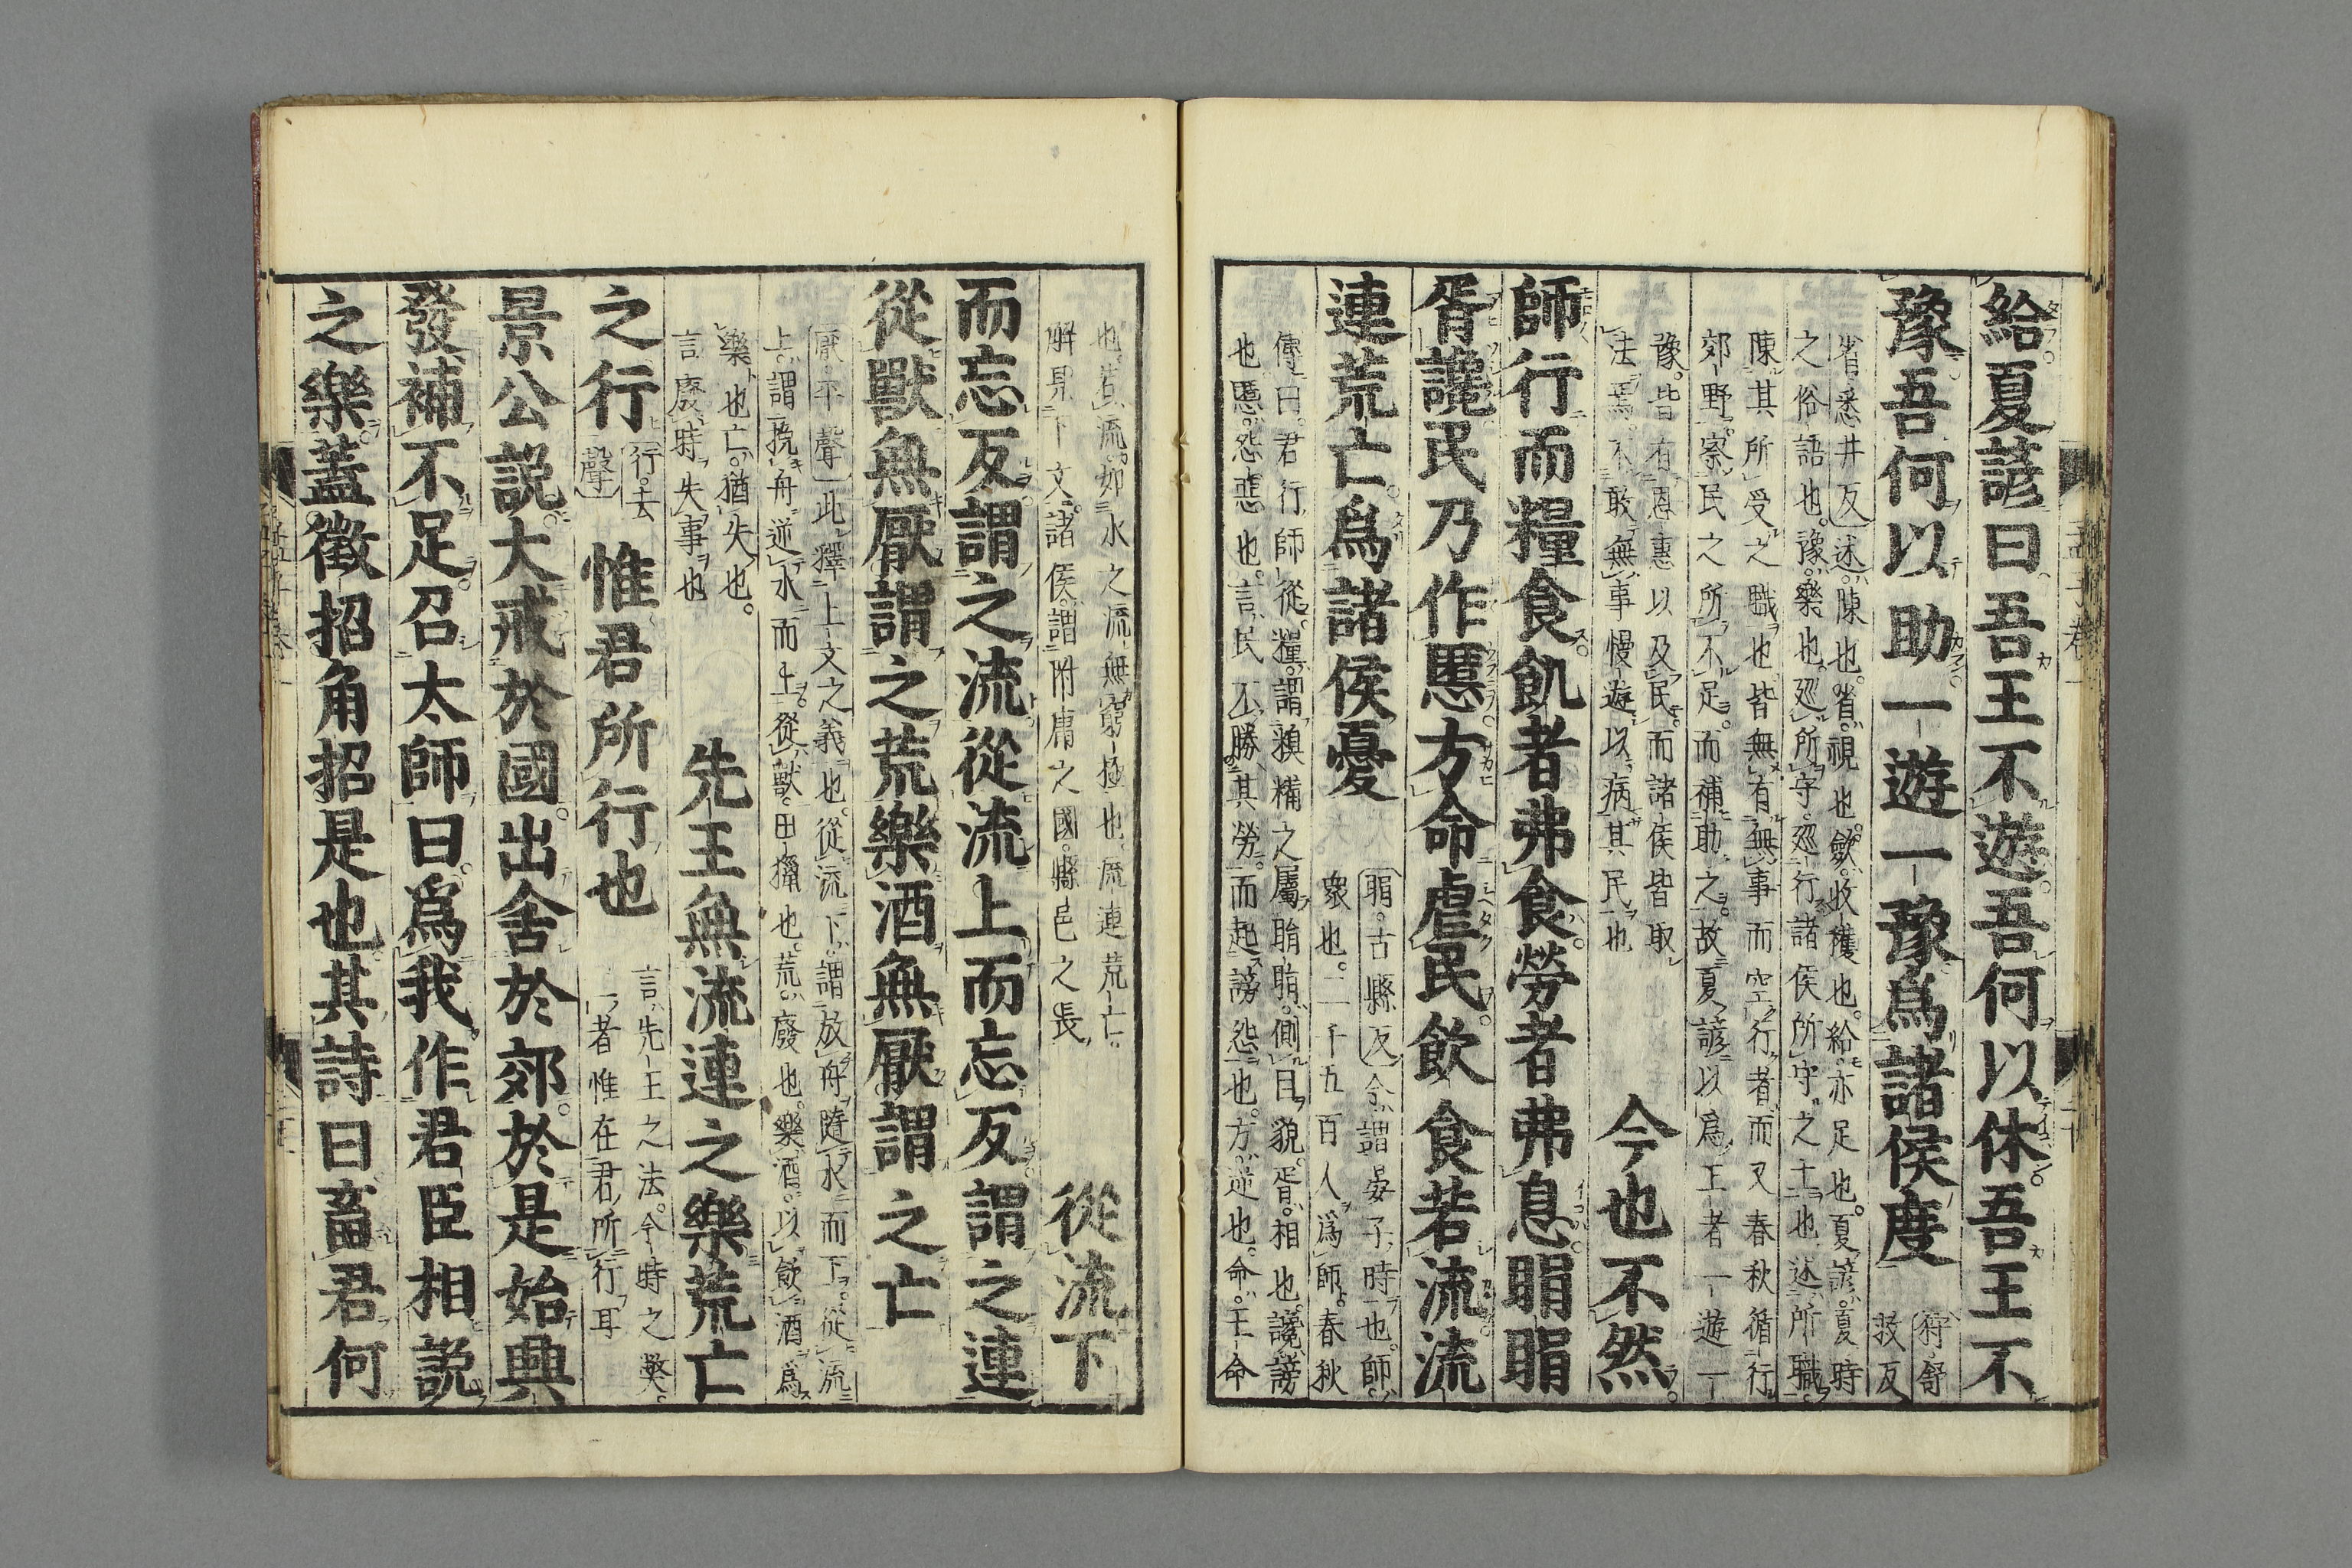 給夏諺曰吾王不遊吾何以休吾王不
豫吾何以助一遊一豫爲諸侯度
狩舒
救反
省悉井反述陳也省視也斂收穫也給亦足也夏諺夏時
之俗語也豫樂也巡所守巡行諸侯所守之土也述所職
陳其所受之職也皆無有無事而空行者而又春秋循行
郊野察民之所不足而補助之故夏諺以爲王者一遊一
豫皆有恩惠以及民而諸侯皆取
法焉不敢無事慢遊以病其民也
今也不然
師行而糧食飢者弗食勞者弗息睊睊
胥讒民乃作慝方命虐民飲食若流流
連荒亡爲諸侯憂
睊古縣反今謂晏子時也師
衆也二千五百人爲師春秋
傳曰君行師從糧謂糗糒之屬睊睊側目貌胥相也讒謗
也慝怨惡也言民不勝其勞而起謗怨也方逆也命王命
也若流如水之流無窮極也流連荒亡
解見下文諸侯謂附庸之國縣邑之長
從流下
而忘反謂之流從流上而忘反謂之連
從獸無厭謂之荒樂酒無厭謂之亡
厭平聲此釋上文之義也從流下謂放舟隨水而下從流
上謂挽舟逆水而上從獸田獵也荒廢也樂酒以飲酒爲
樂也亡猶失也
言廢時失事也
先王無流連之樂荒亡
之行
行去
聲
惟君所行也
言先王之法今時之弊
二者惟在君所行耳
景公說大戒於國出舍於郊於是始興
發補不足召太師曰爲我作君臣相說
之樂蓋徵招角招是也其詩曰畜君何